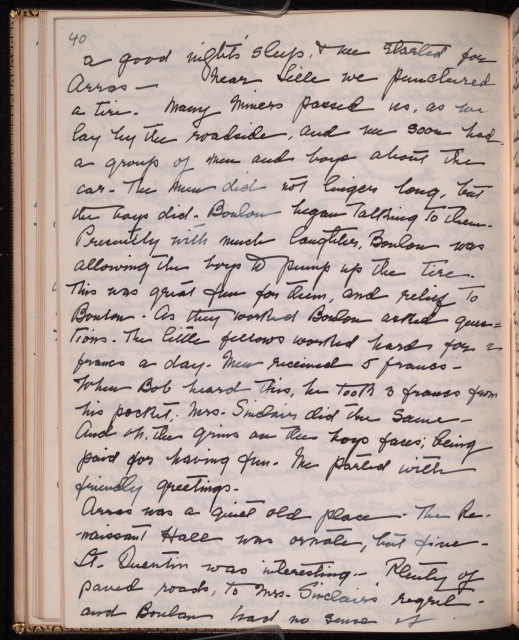 40
a good night's sleep, & we started for
Arras — Near Lille we punctured
a tire. Many miners passed us, as we
lay by the roadside, and we soon had
a group of men and boys about the
car. The men did not linger long, but
the boys did. Boulon began talking to them.
Presently with much laughter, Boulon was
allowing the boys to pump up the tire.
This was great fun for them, and relief to
Boulon. As they worked Boulon asked ques=
tions. The little fellows worked hard for 2
francs a day. Men received 5 francs —
When Bob heard this, he took 3 francs from
his pocket; Mrs. Sinclair did the same —
And oh, the grins on the boys faces, being
paid for having fun. We parted with
friendly greetings.
Arras was a quiet old place. The Re-
naissant Hall was ornate, but fine —
St. Quentin was interesting — Plenty of
paved roads, to Mrs. Sinclair's regret —
and Boulon had no sense of